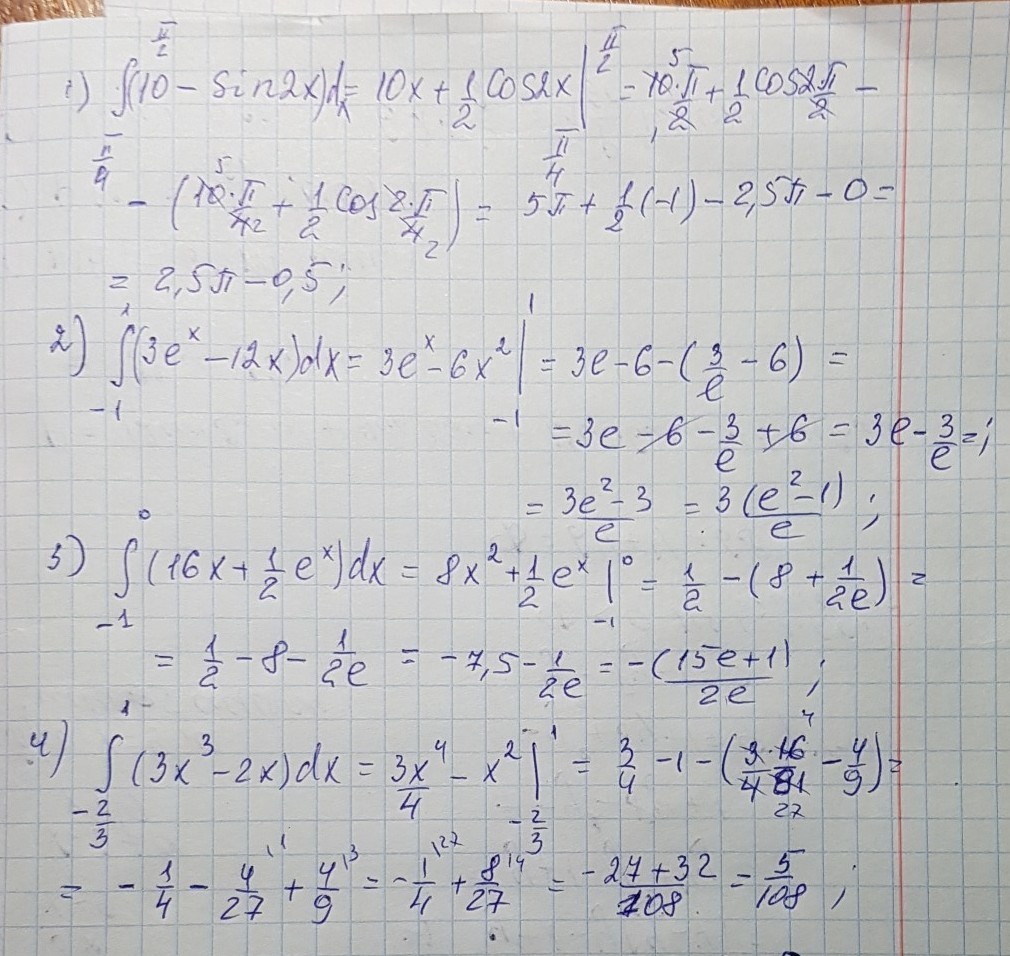 1) ∫(10 - sin2x)dx = 10x + 1/2 cos2x |_{π/4}^{π/2} = 10·π/2 + 1/2 cos 2π/2 -
- (10·π/4 + 1/2 cos 2·π/4) = 5π + 1/2 (-1) - 2,5π - 0 =
= 2,5π - 0,5 ;
2) ∫_{-1}^{1} (3e^x - 12x)dx = 3e^x - 6x^2 |_{-1}^{1} = 3e - 6 - (3/e - 6) =
= 3e - 6 - 3/e + 6 = 3e - 3/e = ;
= (3e^2 - 3)/e = 3(e^2 - 1)/e ;
3) ∫_{-1}^{0} (16x + 1/2 e^x)dx = 8x^2 + 1/2 e^x |_{-1}^{0} = 1/2 - (8 + 1/2e) =
= 1/2 - 8 - 1/2e = -7,5 - 1/2e = -(15e+1)/2e ;
4) ∫_{-2/3}^{1} (3x^3 - 2x)dx = 3x^4/4 - x^2 |_{-2/3}^{1} = 3/4 - 1 - (3·16/4·81 - 4/9) =
= -1/4 - 4/27 + 4/9 = -1/4 + 8/27 = (-27+32)/108 = 5/108 ;